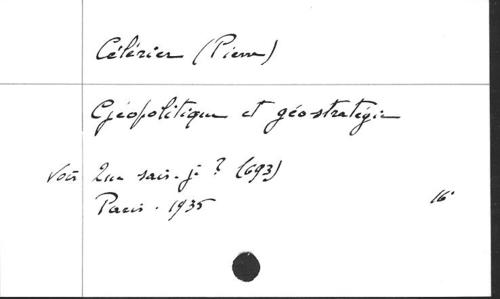 Célérier (Pierre)
Géopolitique et géostratégie
Voir Que sais-je ? (693)
Paris - 1935 16°